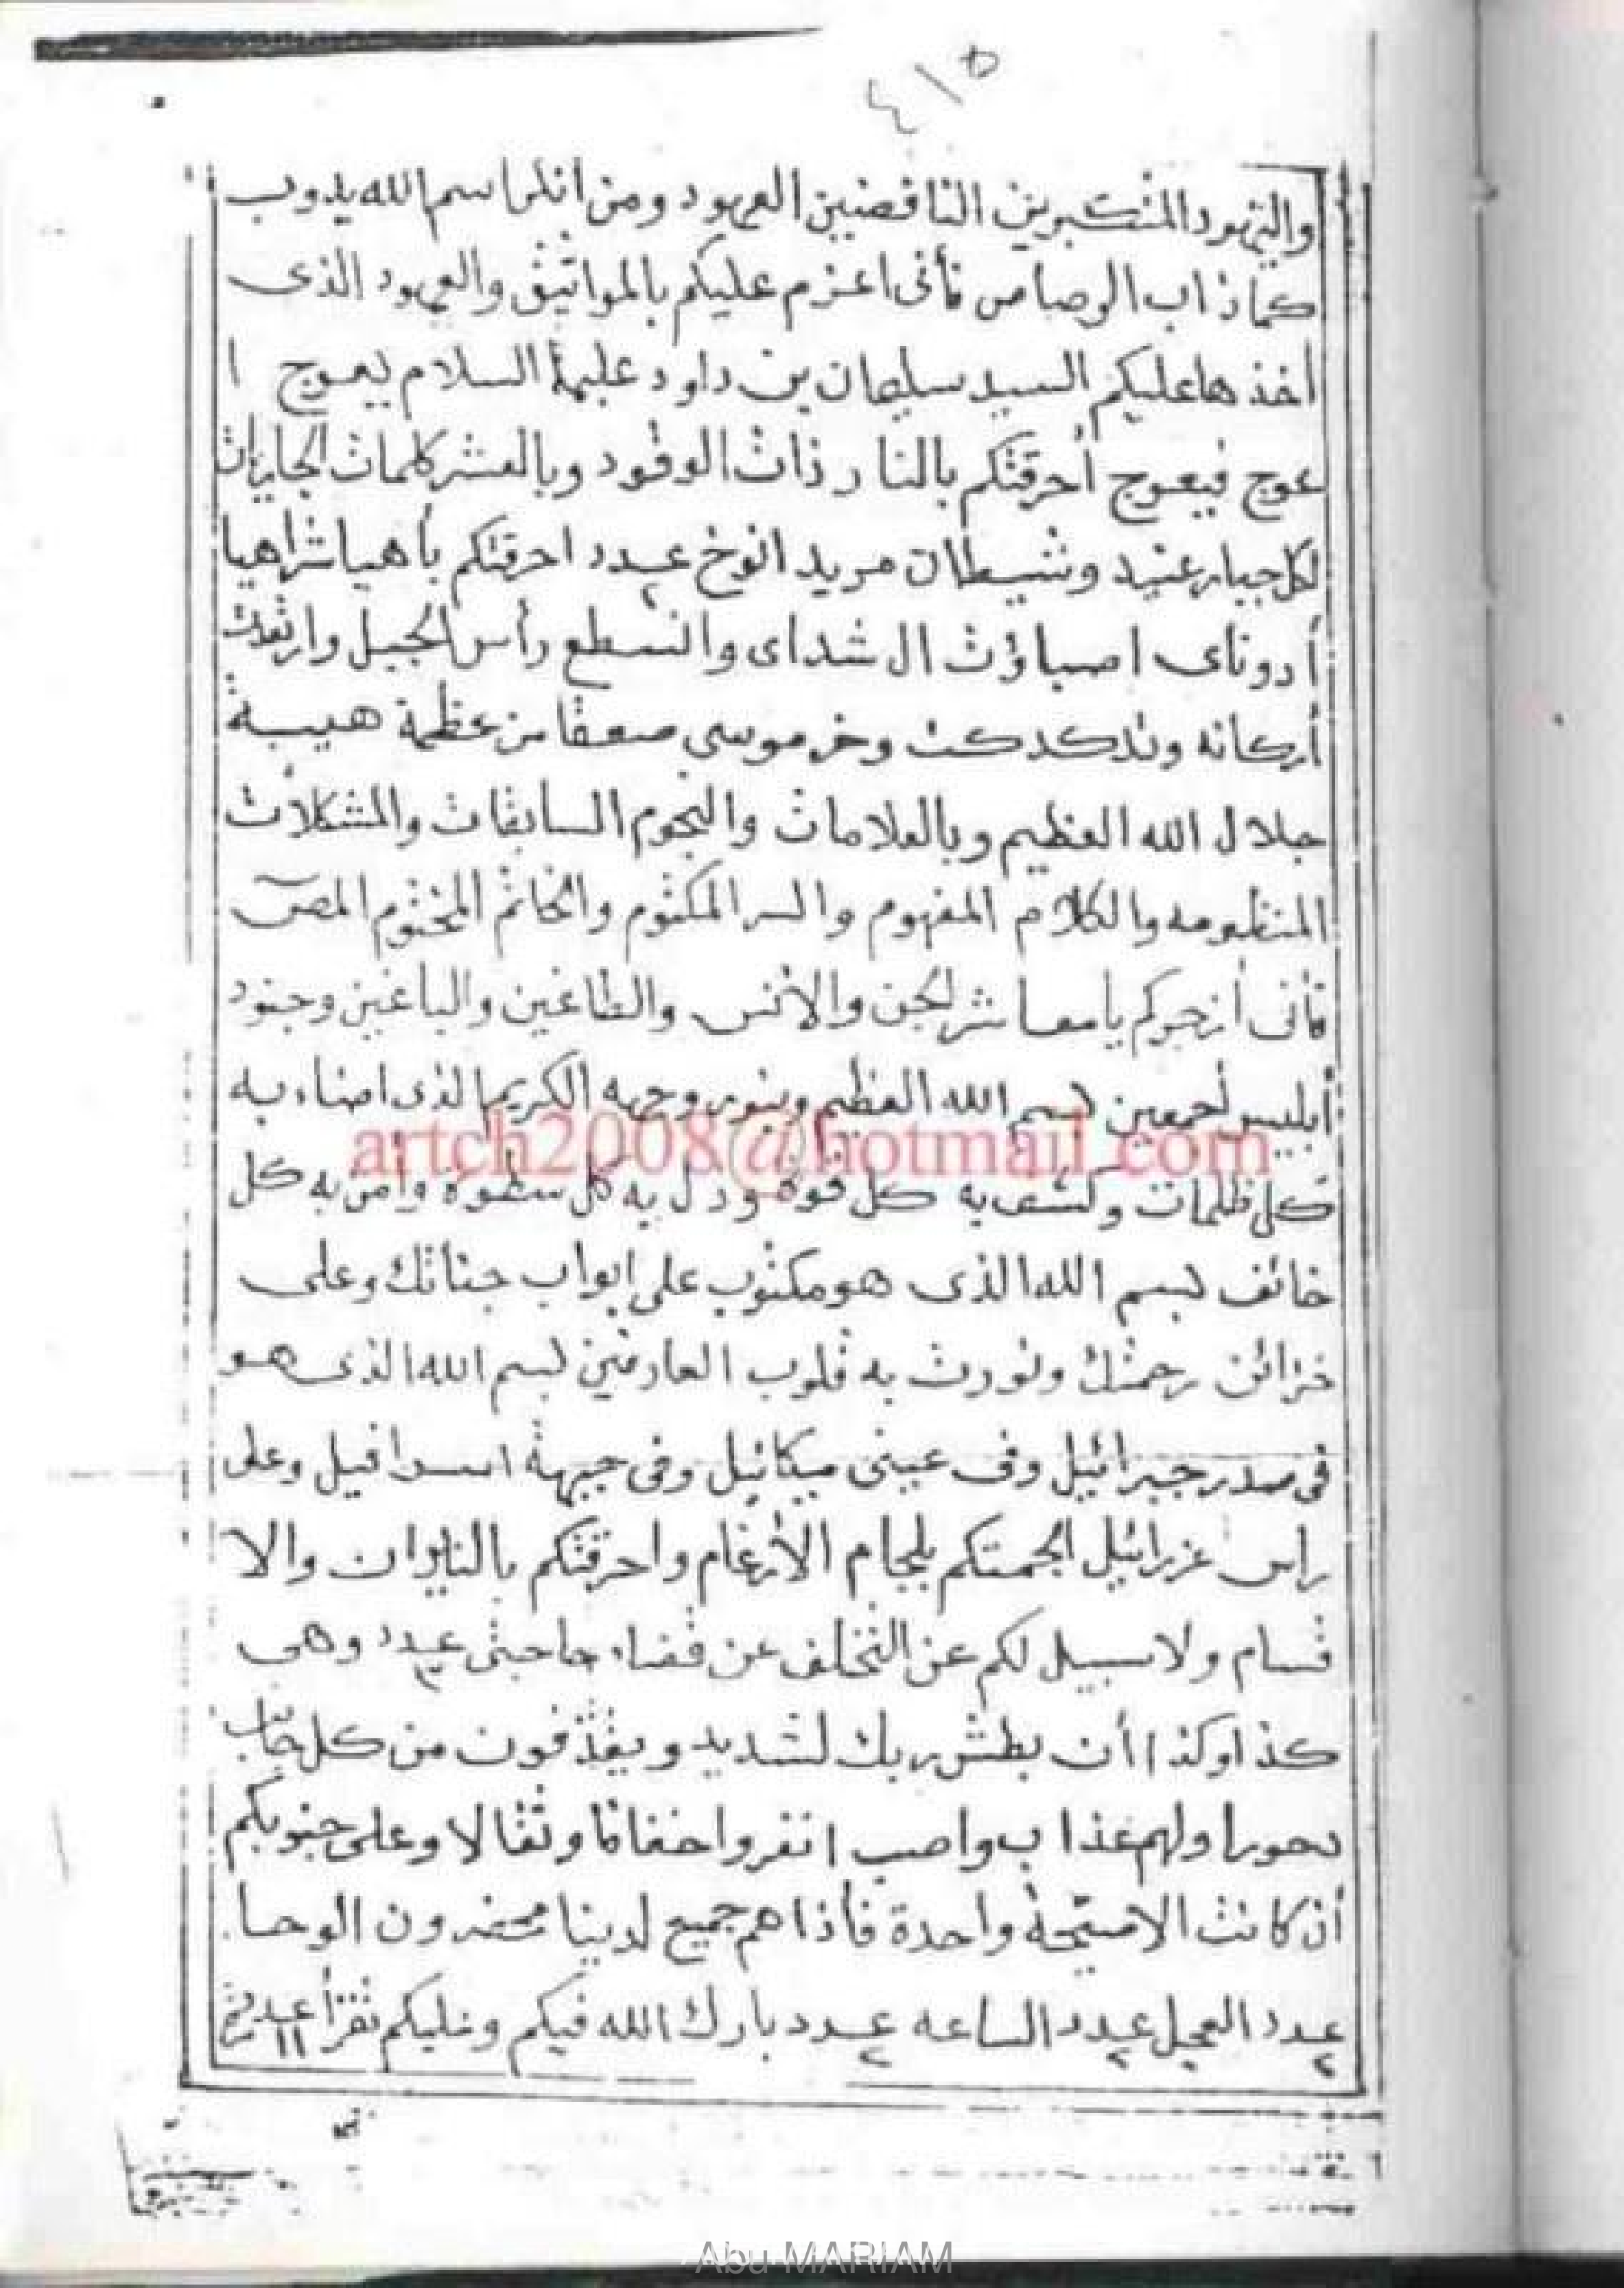 واليهود المتكبرين الناقضين العهود ومن انكر اسم الله يدوب
كما ذاب الرصاص فأنى اعزم عليكم بالمواثيق والعهود الذى
أخذها عليكم السيد سليمان بن داود عليهما السلام يعوج ا
عوج فيعوج أحرقتكم بالنار ذات الوقود وبالعشر كلمات
لكل جبار عنيد وشيطان مريد انوخ عدد ٢ احرقتكم بأهيا شراهيا
أدوناى اصباؤت ال شداى والنسطع رأس الجبل وارتعدت
أركانه وتدكدكت وخر موسى صعقا من عظمة هيبة
جلال الله العظيم وبالعلامات والنجوم السابقات والمشكلات
المنظومه والكلام المفهوم والسر المكتوم والخاتم المختوم
فأنى أزجركم يا معاشر الجن والأنس والطاغين والباغين وجنود
أبليس أجمعين بسم الله العظيم وبنور وجهه الكريم الذى اضاء به
كل ظلمات وكشف به كل قوة وذل به كل سطوة وأمن به كل
خائف بسم الله الذى هو مكتوب على ابواب جناتك وعلى
خزائن رحمتك ونورت به قلوب العارفين بسم الله الذى هو
فى صدر جبرائيل وفى عينى ميكائيل وفى جبهة اسرافيل وعلى
راس عزرائيل الجمتكم بلجام الأرغام واحرقتكم بالنايران والا
قسام ولا سبيل لكم عن التخلف عن قضاء حاجتى عدد ٣ وهى
كذا وكذا أن بطش ربك لشديد ويقذفون من كل جانب
دحورا ولهم عذاب واصب انفروا خفافا وثقالا وعلى جنوبكم
أن كانت الا صيحة واحدة فأذا هم جميع لدينا محضرون الوحا
عدد ٢ العجل عدد ٢ الساعه عدد ٢ بارك الله فيكم وعليكم تقرأ عدد ١١
artch2008@hotmail.com
Abu MARIAM